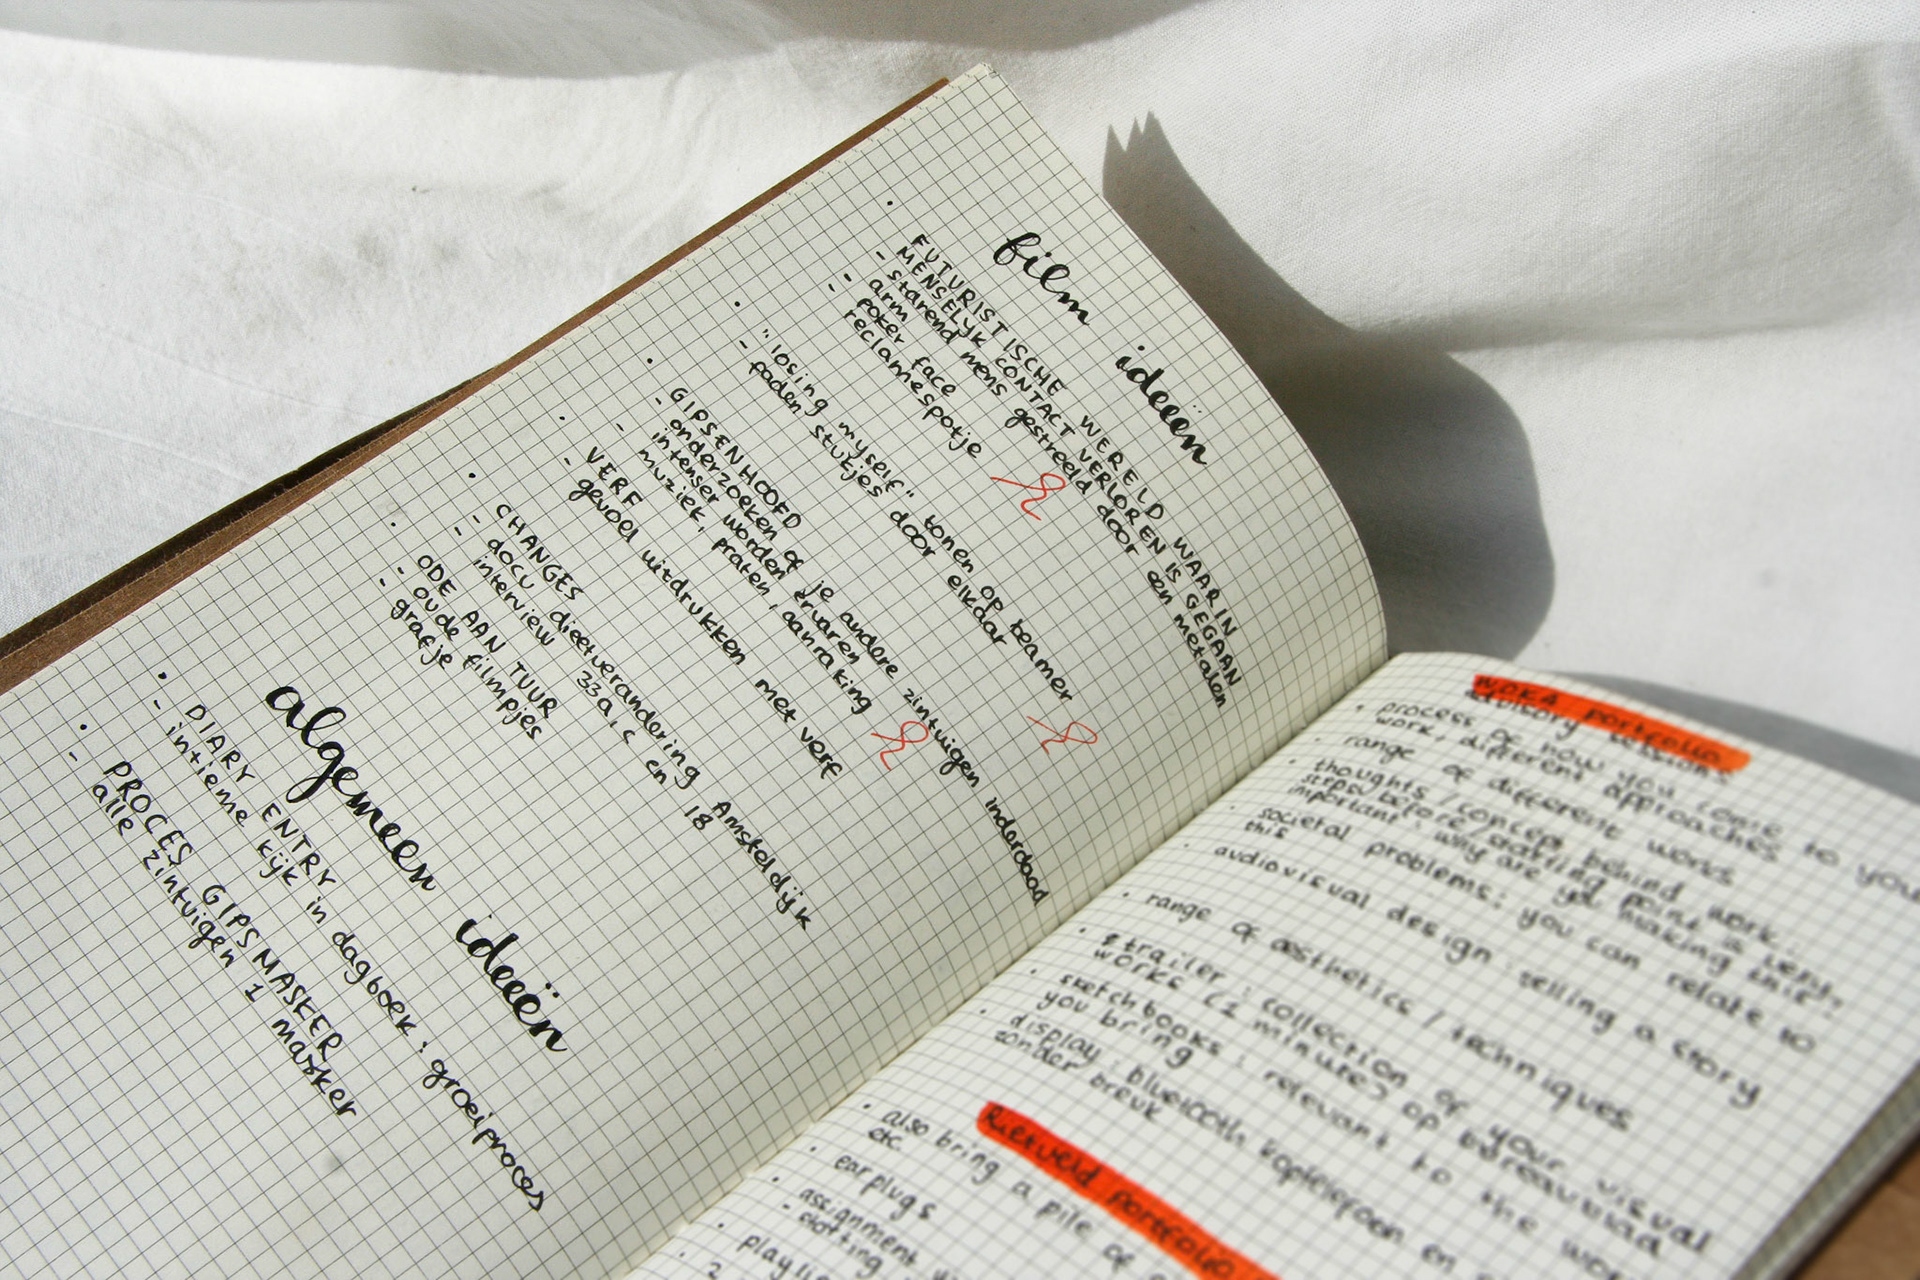 film ideeën
• FUTURISTISCHE WERELD WAARIN
MENSELYK CONTACT VERLOREN IS GEGAAN
- starend mens gestreeld door een metalen
arm
- poker face
reclamespotje
• "losing myself" tonen op beamer
- faden stukjes door elkaar
• GIPSEN HOOFD
- onderzoeken of je andere zintuigen inderdaad
intenser worden ervaren
- muziek, praten, aanraking
• VERF
- gevoel uitdrukken met verf
• CHANGES
- docu dieetverandering Amsteldijk
- interview 33a, c en 18
• ODE AAN TUUR
- oude filmpjes
- grafje
algemeen ideeën
• DIARY ENTRY
- intieme kijk in dagboek: groeiproces
• PROCES GIPS MASKER
- alle zintuigen 1 masker
WDKA portfolio
advisory sessions
• process of how you come to your
work, different approaches
• range of different works
• thoughts/concept behind work.
steps before/starting point is very
important: why are you making this?
• societal problems; you can relate to
this
• audiovisual design: telling a story
• range of aesthetics / techniques
• trailer: collection of your visual
works (1 minute)
• sketchbooks: relevant to the
you bring
• display: bluetooth koptelefoon en
zonder breuk
Rietveld portfolio
• also bring a pile of
etc.
• earplugs
• assignment
• playli